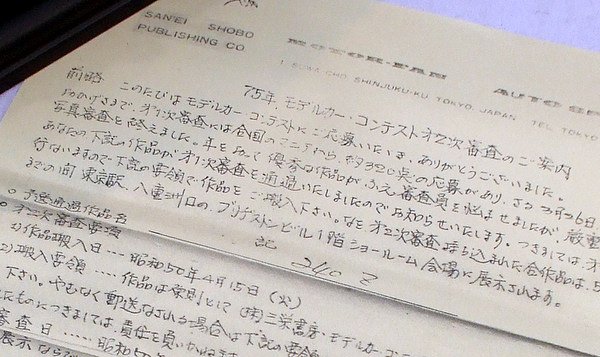 SAN'EI SHOBO
PUBLISHING CO
MOTOR-FAN AUTO SP
1 SUWA-CHO SHINJUKU-KU TOKYO, JAPAN TEL TOKYO
75年、モデルカー・コンテスト才2次審査のご案内
前略 このたびはモデルカー・コンテストにご応募いただき、ありがとうございました。
おかげさまで、才1次審査には全国のマニアから、約320点の応募があり、さる3月26日、
写真審査を終えました。年を追って優秀な作品がふえ審査員を悩ませましたが、厳
あなたの下記の作品が才1次審査を通過いたしましたのでお知らせいたします。つきましては才
行ないますので下記の要領で作品をご搬入下さい。なお才2次審査に持ち込まれた全作品は、5
までの間 東京駅、八重洲口の、ブリヂストンビル1階ショールーム会場に展示されます。
記
○予選通過作品名 240Z
○才2次審査要領
1)作品搬入日 ---- 昭和50年4月15日(火)
2)搬入要領 ---- 作品は原則として(株)三栄書房・モデルカー・コンテ
下さい。やむなく郵送なさる場合は下記の要領
たものにつきましては、責任を負いかねます
審査日 ---- 昭和50
展示